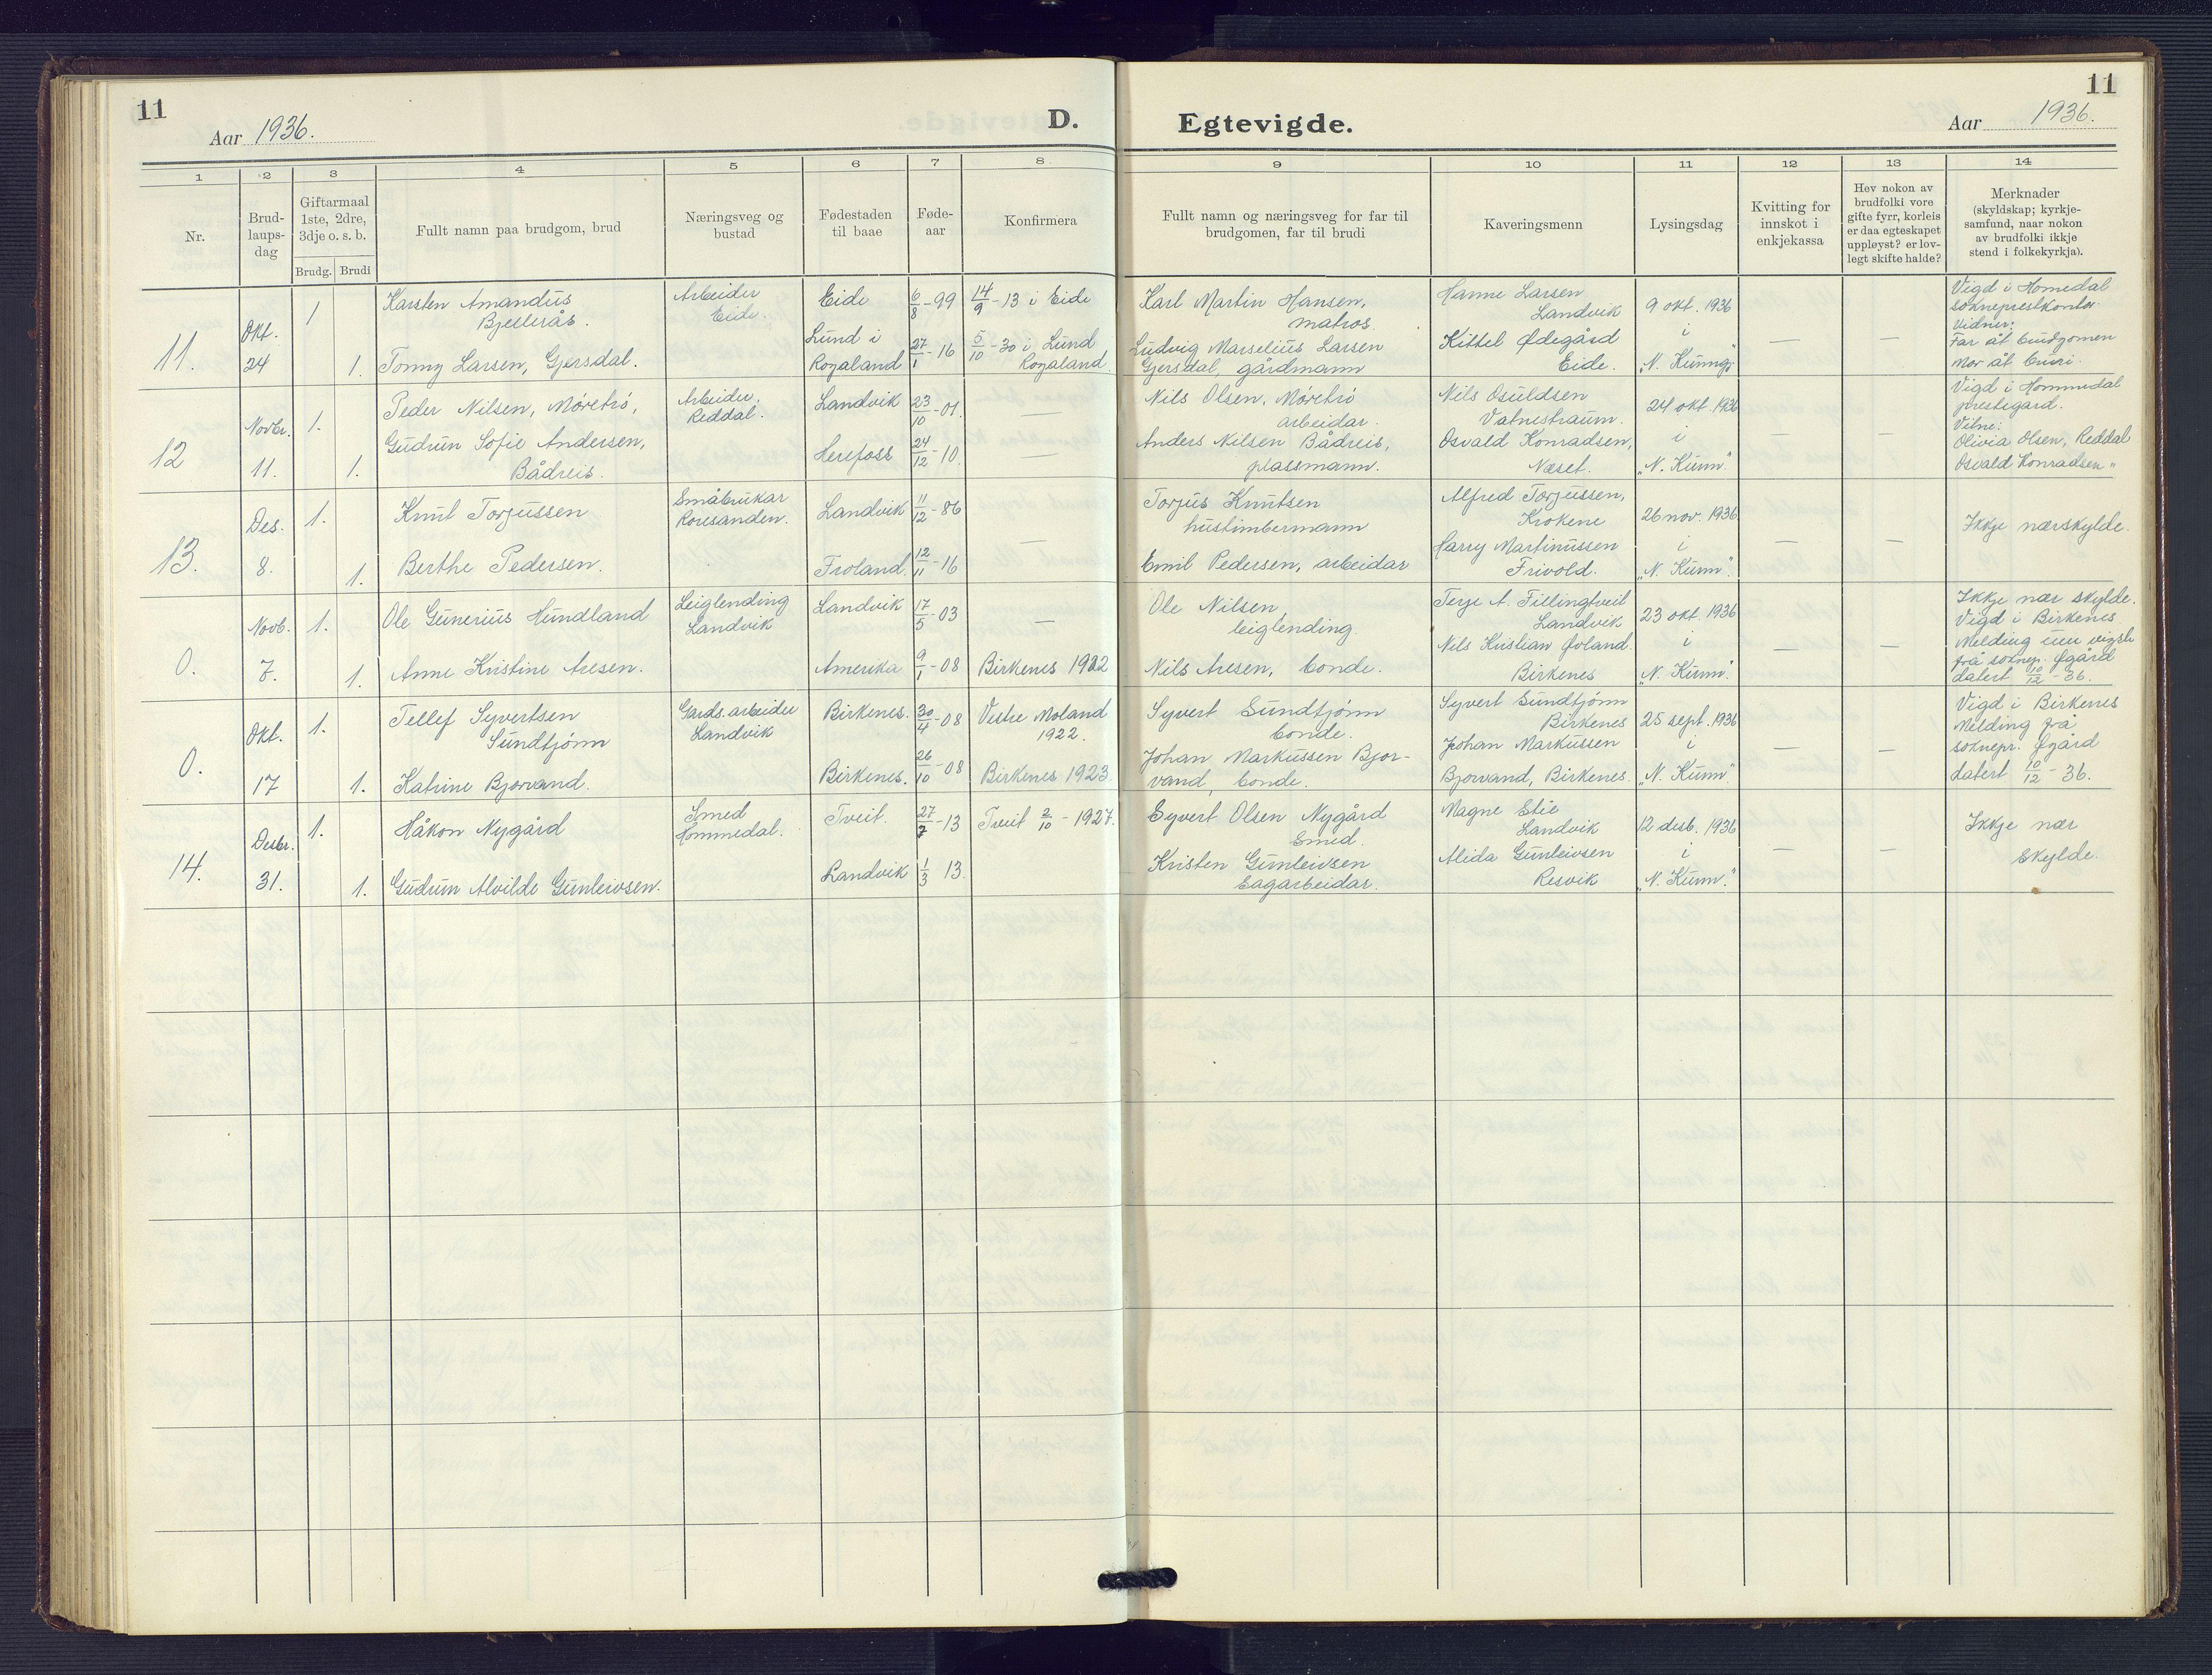 11
Aar 1936.
D. Egtevigde.
Aar 1936.
11
1 2 3 4 5 6 7 8 9 10 11 12 13 14
Nr.
Brud-
laups-
dag
Giftarmaal
1ste, 2dre,
3dje o. s. b.
Brudg. Brudi
Fullt namn paa brudgom, brud
Næringsveg og
bustad
Fødestaden
til baae
Føde-
aar
Konfirmera
Fullt namn og næringsveg for far til
brudgomen, far til brudi
Kaveringsmenn
Lysingsdag
Kvitting for
innskot i
enkjekassa
Hev nokon av
brudfolki vore
gifte fyrr, korleis
er daa egteskapet
uppløyst? er lov-
legt skifte halde?
Merknader
(skyldskap; kyrkje-
samfund, naar nokon
av brudfolki ikkje
stend i folkekyrkja).
11.
Okt.
24
1
Karsten Amandus
Bjellerås.
Arbeider
Eide.
Eide
6/8-99
14/9-13 i Eide
1.
Tonny Larsen, Gjersdal.
Lund i
Rogaland
27/1-16
5/10-30 i Lund
Rogaland.
Karl Martin Hansen,
matros.
Ludvig Marselius Larsen
Gjersdal, gårdmann
Hanne Larsen
Landvik
Kittel Ødegård
Eide.
9 okt. 1936
i
"N. Kunng."
—
—
Vigd i Homedal
sokneprestkontor.
Vidner:
Far åt brudgomen
Mor åt brudi.
12
Novbr.
11.
1.
Peder Nilsen, Møretrø,
Arbeider.
Reddal.
Landvik
23/10-01.
—
1.
Gudrun Sofie Andersen,
Bådreis.
Herefoss
24/12-10.
—
Nils Olsen, Møretrø
arbeidar.
Anders Nilsen Bådreis,
plassmann.
Nils Osuldsen
Vatnestraum.
Osvald Konradsen,
Næset.
24 okt. 1936
i
"N. Kunn."
—
—
Vigd i Hommedal
prestegard.
Vitne:
Olivia Olsen, Reddal
Osvald Konradsen "
13.
Des.
8.
1.
Knut Torjussen
Småbrukar
Roresanden.
Landvik
11/12-86
—
1.
Berthe Pedersen.
Froland.
12/11-16
Torjus Knutsen
hustimbermann
Emil Pedersen, arbeidar
Alfred Torjussen,
Krokene
Harry Martinussen
Frivold.
26 nov. 1936
i
"N. Kunn".
—
—
Ikkje nærskylde.
0.
Novb.
7.
1.
Ole Gunerius Hundland
Leiglending
Landvik
Landvik
17/5-03
—
1.
Anne Kristine Aresen.
Amerika
9/1-08
Birkenes 1922
Ole Nilsen
leiglending.
Nils Aresen, bonde.
Terje A. Tillingtveit
Landvik
Nils Kristian Øvland.
Birkenes
23 okt. 1936
i
"N. Kunn".
—
—
Ikkje nær skylde.
Vigd i Birkenes
Melding um vigsle
frå soknepr. Øgård
datert 10/12-36.
0.
Okt.
17
1.
Tellef Syvertsen
Sundtjønn
Gards.arbeider
Landvik
Birkenes.
30/4-08
Vestre Moland
1922.
1.
Katrine Bjorvand.
Birkenes.
26/10-08
Birkenes 1923.
Syvert Sundtjønn
bonde.
Johan Markussen Bjor-
vand, bonde.
Syvert Sundtjønn
Birkenes
Johan Markussen
Bjorvand, Birkenes.
25 sept. 1936
i
"N. Kunn"
—
—
Vigd i Birkenes
Melding frå
soknepr. Øgård
datert 10/12-36.
14.
Desbr.
31.
1.
Håkon Nygård
Smed
Hommedal.
Tveit.
27/7-13
Tveit 2/10-1927.
1.
Gudrun Alvilde Gunleivsen.
Landvik
1/3 13.
Syvert Olsen Nygård
Smed.
Kristen Gunleivsen
Sagarbeidar.
Magne Stie
Landvik
Alida Gunleivsen
Resvik
12 desb. 1936
i
"N. Kunn."
—
—
Ikkje nær
skylde.